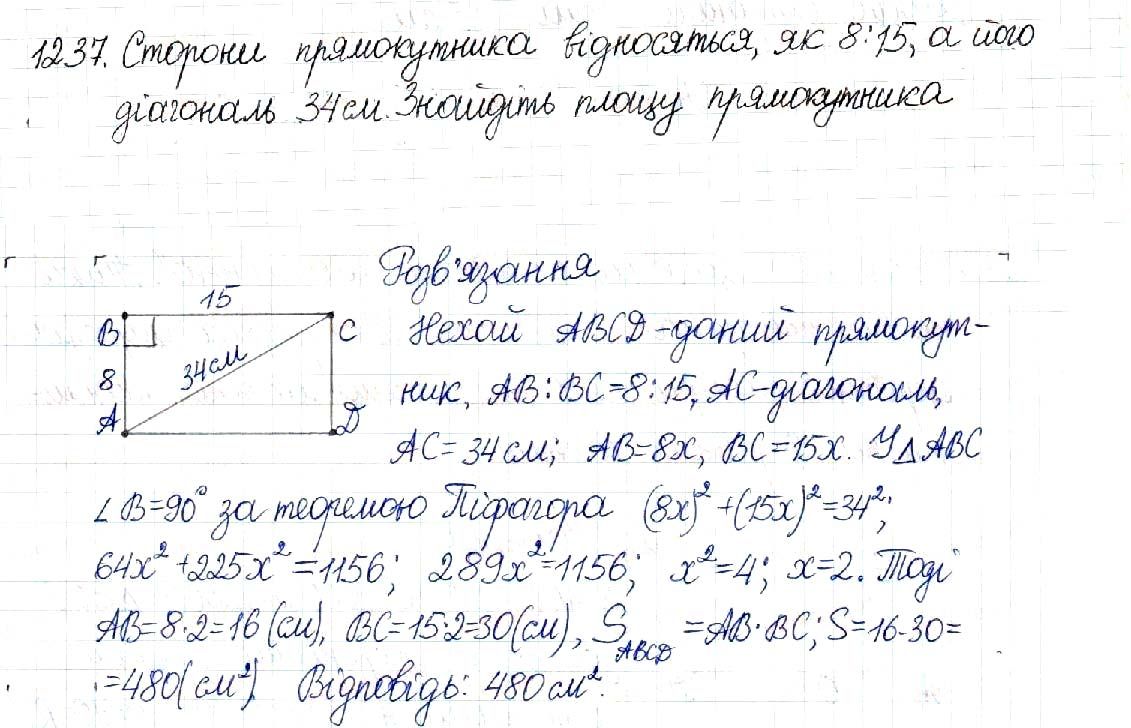 1237. Сторони прямокутника відносяться, як 8:15, а його
діагональ 34 см. Знайдіть площу прямокутника
Розв'язання
15
B
C
8
34 см
A
D
Нехай ABCD - даний прямокут-
ник, AB:BC=8:15, AC-діагональ,
AC=34 см; AB=8x, BC=15x. У △ABC
∠B=90° за теоремою Піфагора (8x)²+(15x)²=34²;
64x²+225x²=1156; 289x²=1156; x²=4; x=2. Тоді
AB=8·2=16 (см), BC=15·2=30(см), S ABCD =AB·BC; S=16·30=
=480(см²). Відповідь: 480 см².